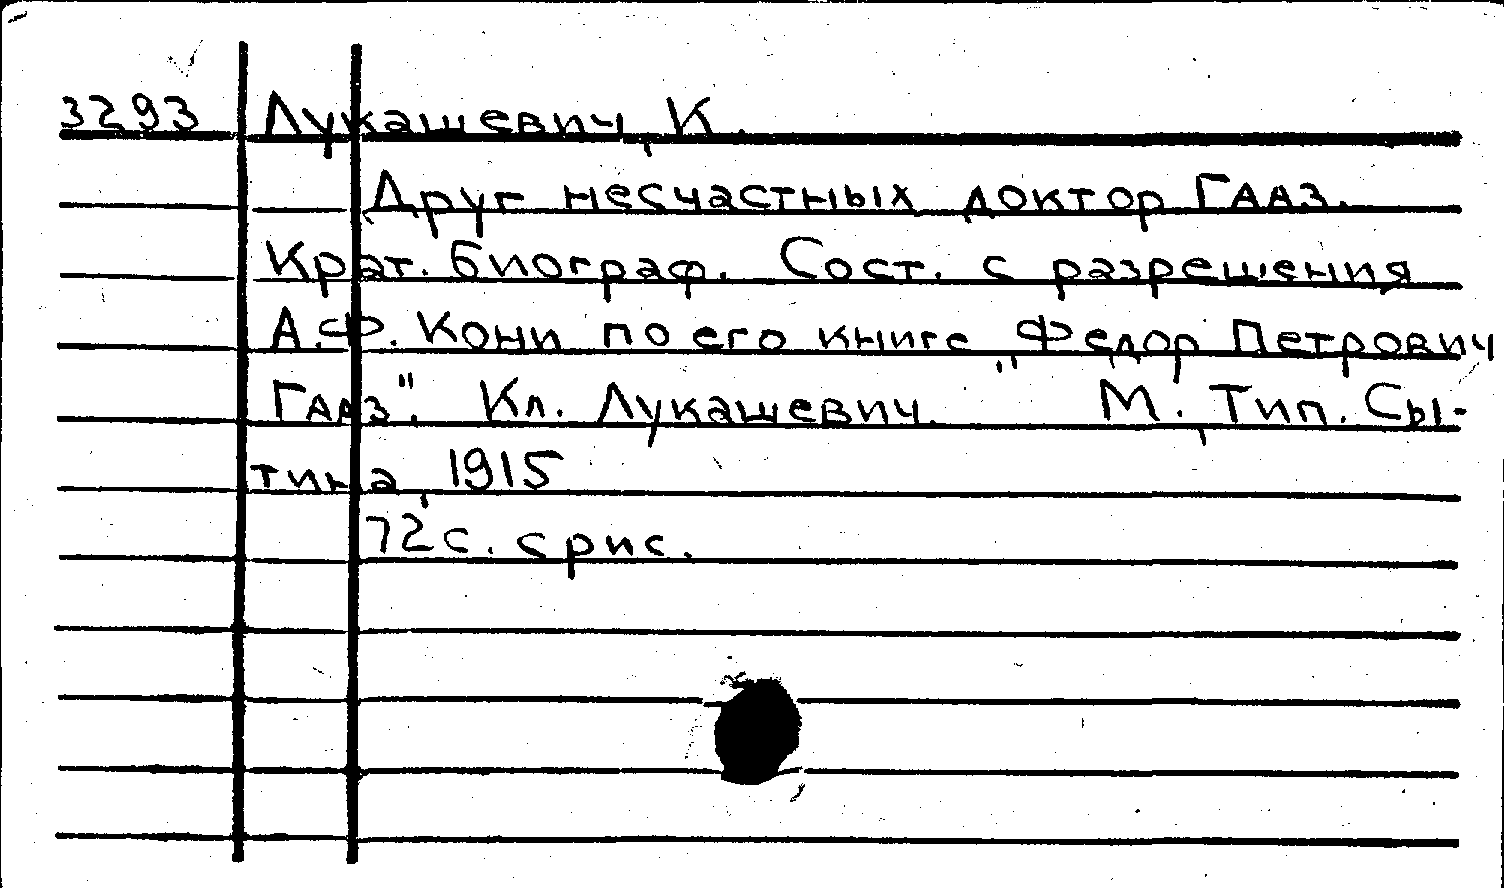 3293 Лукашевич, К.
Друг несчастных доктор Гааз.
Крат. биограф. Сост. с разрешения
А.Ф. Кони по его книге „Федор Петрович
Гааз". Кл. Лукашевич. М., Тип. Сы-
тина, 1915
72 с. с рис.